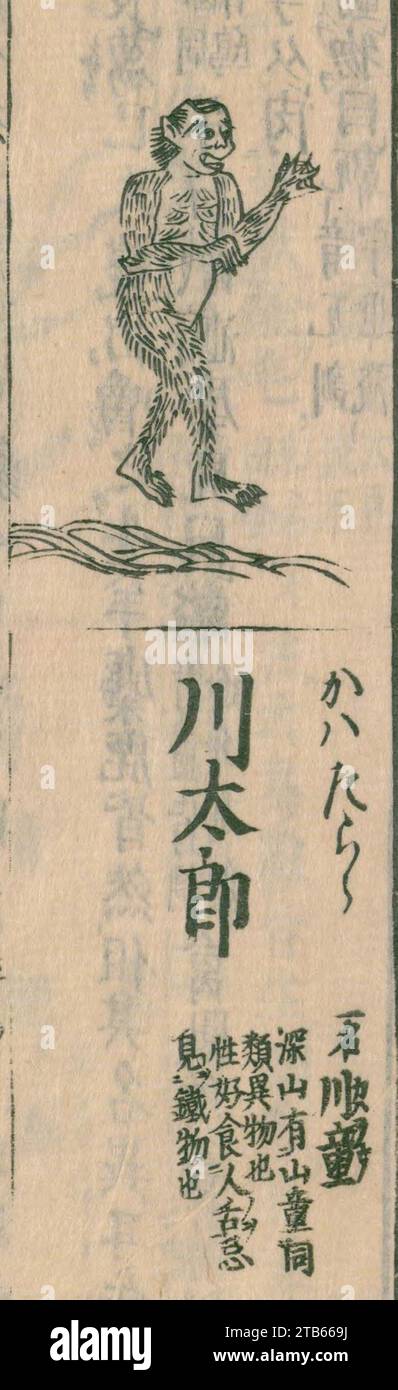 alamy
かハたらう
川太郎
一名川童
深山有山童同
類異物也
性好食人舌忌
見鐵物也
alamy
Image ID: 2TB669J
www.alamy.com